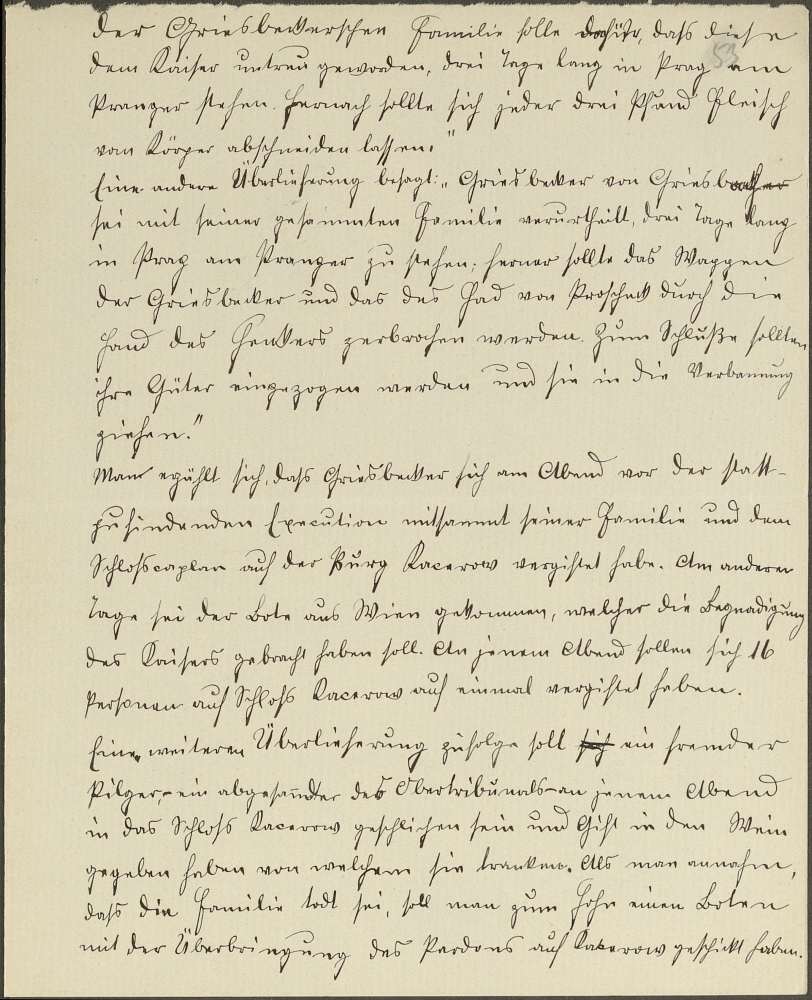 der Griesbeckerschen Familie solle dafür, dass diese
dem Kaiser untreu geworden, drei Tage lang in Prag am
53
Pranger stehen. Hernach sollte sich jeder drei Pfund Fleisch
vom Körper abschneiden lassen."
Eine andere Überlieferung besagt: „Griesbecker von Griesbach
sei mit seiner gesammten Familie verurtheilt, drei Tage lang
in Prag am Pranger zu stehen; ferner sollte das Wappen
der Griesbecker und das des Had von Proscheck durch die
Hand des Henkers zerbrochen werden. Zum Schluße sollten
ihre Güter eingezogen werden und sie in die Verbannung
ziehen."
Man erzählt sich, dass Griesbecker sich am Abend vor der statt-
zufindenden Execution mitsammt seiner Familie und dem
Schlosscaplan auf der Burg Kacerow vergiftet habe. Am anderen
Tage sei der Bote aus Wien gekommen, welcher die Begnadigung
des Kaisers gebracht haben soll. An jenem Abend sollen sich 16
Personen auf Schloss Kacerow auf einmal vergiftet haben.
Einer weiteren Überlieferung zufolge soll sich ein fremder
Pilger, – ein abgesandter des Obertribunals – an jenem Abend
in das Schloss Kacerow geschlichen sein und Gift in den Wein
gegeben haben von welchem sie tranken. Als man annahm,
dass die Familie todt sei, soll man zum Hohn einen Boten
mit der Überbringung des Pardons auf Kacerow geschickt haben.